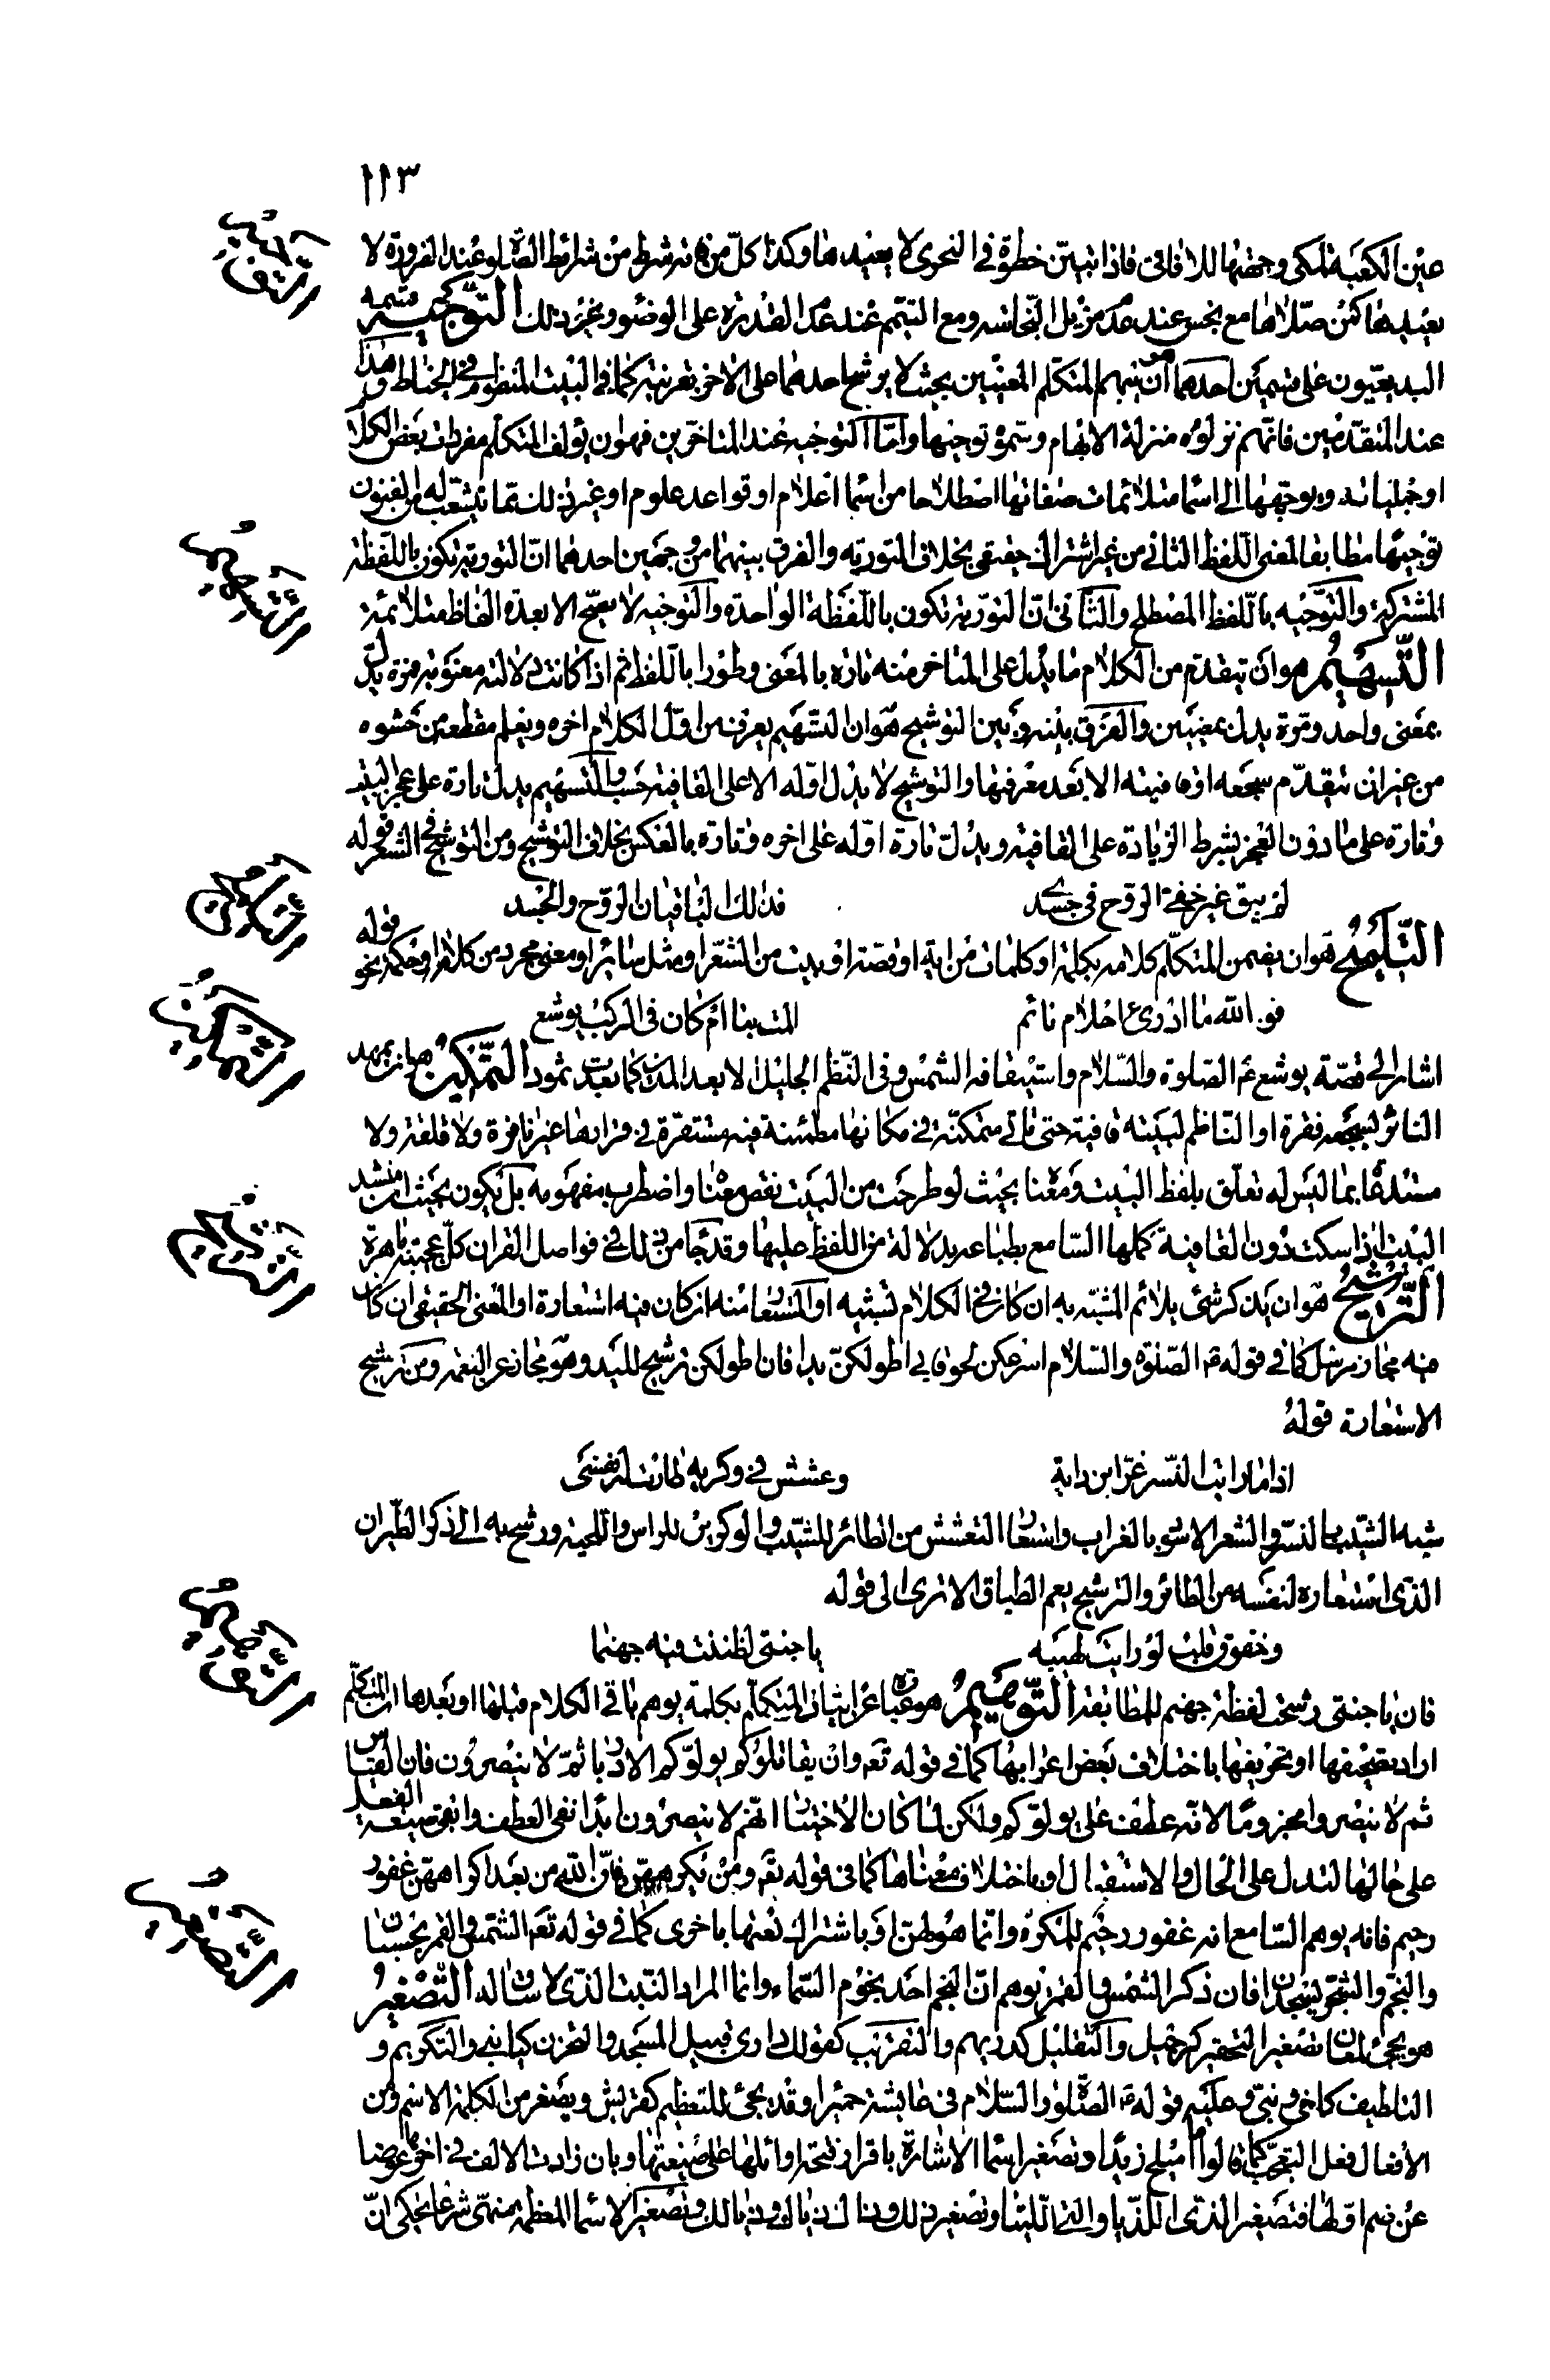 ١١٣
عين الكعبة لمكى وجهتها للافاقى فاذا تبين خطوة فى التحرى لا يعيدها وكذا كل من فاته شرط من شرائط الصلوة عند الضرورة لا
يعيدها كمن صلاها مع نجس عند عدم مزيل النجاسة ومع التيمم عند عدم القدرة على الوضوء وغير ذلك التوجيه قسمه
البديعيون على قسمين احدهما ان يبهم المتكلم المعنيين بحيث لا يرشح احدهما على الاخر بقرينة كما فى البيت المنظوم فى الخياط وهذا
عند المتقدمين فانهم نزلوه منزلة الابهام وسموه توجيها واما التوجيه عند المتاخرين فهو ان يؤلف المتكلم مفردات بعض الكلام
او جملياته ويوجهها الى اسما متلائمات صفاتها اصطلاحا من اسما اعلام او قواعد علوم او غير ذلك مما يتشعب له من الفنون
توجيها مطابقا لمعنى اللفظ الثانى من غير اشتراك حقيقى بخلاف التورية والفرق بينهما من وجهين احدهما ان التورية تكون باللفظة
المشتركة والتوجيه باللفظ المصطلح والثانى ان التورية تكون باللفظة الواحدة والتوجيه لا يصح الا بعدة الفاظ متلائمة
التسهيم هو ان يتقدم من الكلام ما يدل على المتاخر منه تارة بالمعنى وطورا باللفظ ثم اذا كانت دلالته معنوية فمرة يدل
بمعنى واحد ومرة يدل بمعنيين والفرق بينه وبين التوشيح هو ان التسهيم يعرف من اول الكلام اخره ويعلم مقطعه من حشوه
من غير ان تتقدم سجعه او قافيته الا بعد معرفتها والتوشيح لا يدل اوله الا على القافية حسب والتسهيم يدل تارة على عجز البيت
وتارة على ما دون العجز بشرط الزيادة على القافية ويدل تارة اوله على اخره وتارة بالعكس بخلاف التوشيح ومن التوشيح فى الشعر قوله
لم يبق غير خفى الروح فى جسدى
فدى لك الباقيان الروح والجسد
التلميح هو ان يضمن المتكلم كلامه بكلمة او كلمات من اية او قصة او بيت من الشعر او مثل سائر او معنى مجرد من كلام او حكمة نحو قوله
فو الله ما ادرى ءاحلام نائم
المت بنا ام كان فى الركب يوشع
اشار الى قصة يوشع عم الصلوة والسلام واستيقافه الشمس وفى النظم الجليل الا بعدا لمدين كما بعدت ثمود التمكين هو ان يمهد
الناثر لسجعه فقرة او الناظم لبيته قافية حتى تاتى متمكنة فى مكانها مطمئنة فيه مستقرة فى قرارها غير نافرة ولا قلقة ولا
مستدعاة بما ليس له تعلق بلفظ البيت ومعناه بحيث لو طرحت من البيت نقص معناه واضطرب مفهومه بل يكون بحيث ان منشد
البيت اذا سكت دون القافية كملها السامع بطباعه بدلالة من اللفظ عليها وقد جا من ذلك فى فواصل القران كل عجيبة باهرة
الترشيح هو ان يذكر شئ يلائم المشبه به ان كان فى الكلام تشبيه او المستعار منه ان كان فيه استعارة او المعنى الحقيقى ان كان
فيه مجاز مرسل كما فى قوله عم الصلوة والسلام اسرعكن لحوقا بى اطولكن يدا فان اطولكن ترشيح لليد وهو مجاز عن النعمة ومن ترشيح
الاستعارة قوله
اذا ما رايت النسر عز ابن داية
وعشش فى وكريه طارت له نفسى
شبه الشيب بالنسر والشعر الاسود بالغراب واستعار التعشش من الطائر للشيب والوكرين للراس واللحية ورشح به الى ذكر الطيران
الذى استعاره لنفسه من الطائر والترشيح يعم الطباق الا ترى الى قوله
وخفوق قلب لو رايت لهيبه
يا جنتى لظننت فيه جهنما
فان يا جنتى رشحت لفظة جهنم للمطابقة التوهيم هو عبارة عن اتيان المتكلم بكلمة يوهم باقى الكلام قبلها او بعدها ان المتكلم
اراد تصحيفها او تحريفها باختلاف بعض اعرابها كما فى قوله تعه وان يقاتلوكم يولوكم الادبار ثم لا ينصرون فان القياس
ثم لا ينصروا مجزوما لانه عطف على يولوكم ولكن لما كان الاخبار انهم لا ينصرون ابدا نفى العطف وابقى صيغة الفعل
على حالها لتدل على الحال والاستقبال او باختلاف معناها كما فى قوله تعه ومن يكرههن فان الله من بعد اكراههن غفور
رحيم فانه يوهم السامع انه غفور رحيم للمكره وانما هو لهن او باشتراك لغتها باخرى كما فى قوله تعه الشمس والقمر بحسبان
والنجم والشجر يسجدان فان ذكر الشمس والقمر يوهم ان النجم احد نجوم السماء وانما المراد النبت الذى لا ساق له التصغير
هو يجئ لمعان تصغير التحقير كرجيل والتقليل كدريهم والتقريب كقولك دارى قبيل المسجد والتحزن كيا بنى والتكريم و
التلطيف كاخى وبنى وعليه قوله عم الصلوة والسلام فى عايشة حميرا وقد يجئ للتعظيم كقريش ويصغر من الكلمة الاسم ومن
الافعال فعل التعجب كما قالوا ما اميلح زيدا وتصغير اسما الاشارة باقرار فتحة اوائلها على صيغتها وبان زادت الالف فى اخرها عوضا
عن ضم اولها فتصغير الذى اللذيا والتى اللتيا وتصغير ذلك وذاك ذيالك وذياك وتصغير الاسما المعظمة منهى شرعا يحكى ان
التسهيم
التمكين
الترشيح
التوهيم
التصغير